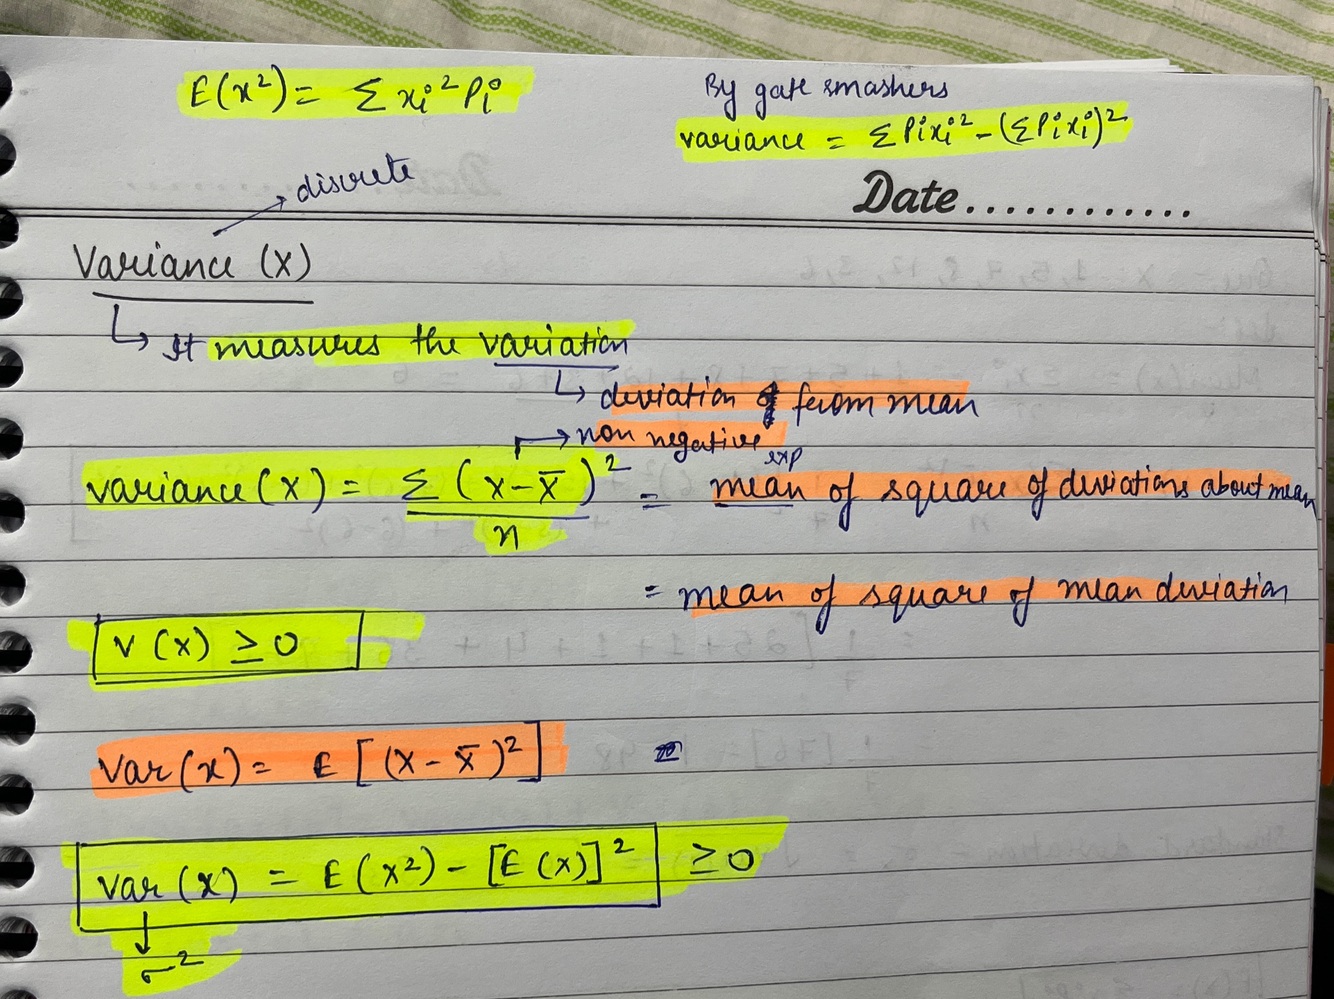 E(x²) = Σ xi² Pi
By gate smashers
variance = Σ Pi xi² - (Σ Pi xi)²
discrete
Date............
Variance (X)
↳ It measures the variation
↳ deviation from mean
→ non negative exp
variance (X) = Σ (X - X̄)² / n = mean of square of deviations about mean
= mean of square of mean deviation
V (X) ≥ 0
Var (x) = E [(X - X̄)²] =
Var (x) = E (X²) - [E (X)]² ≥ 0
↓
σ²